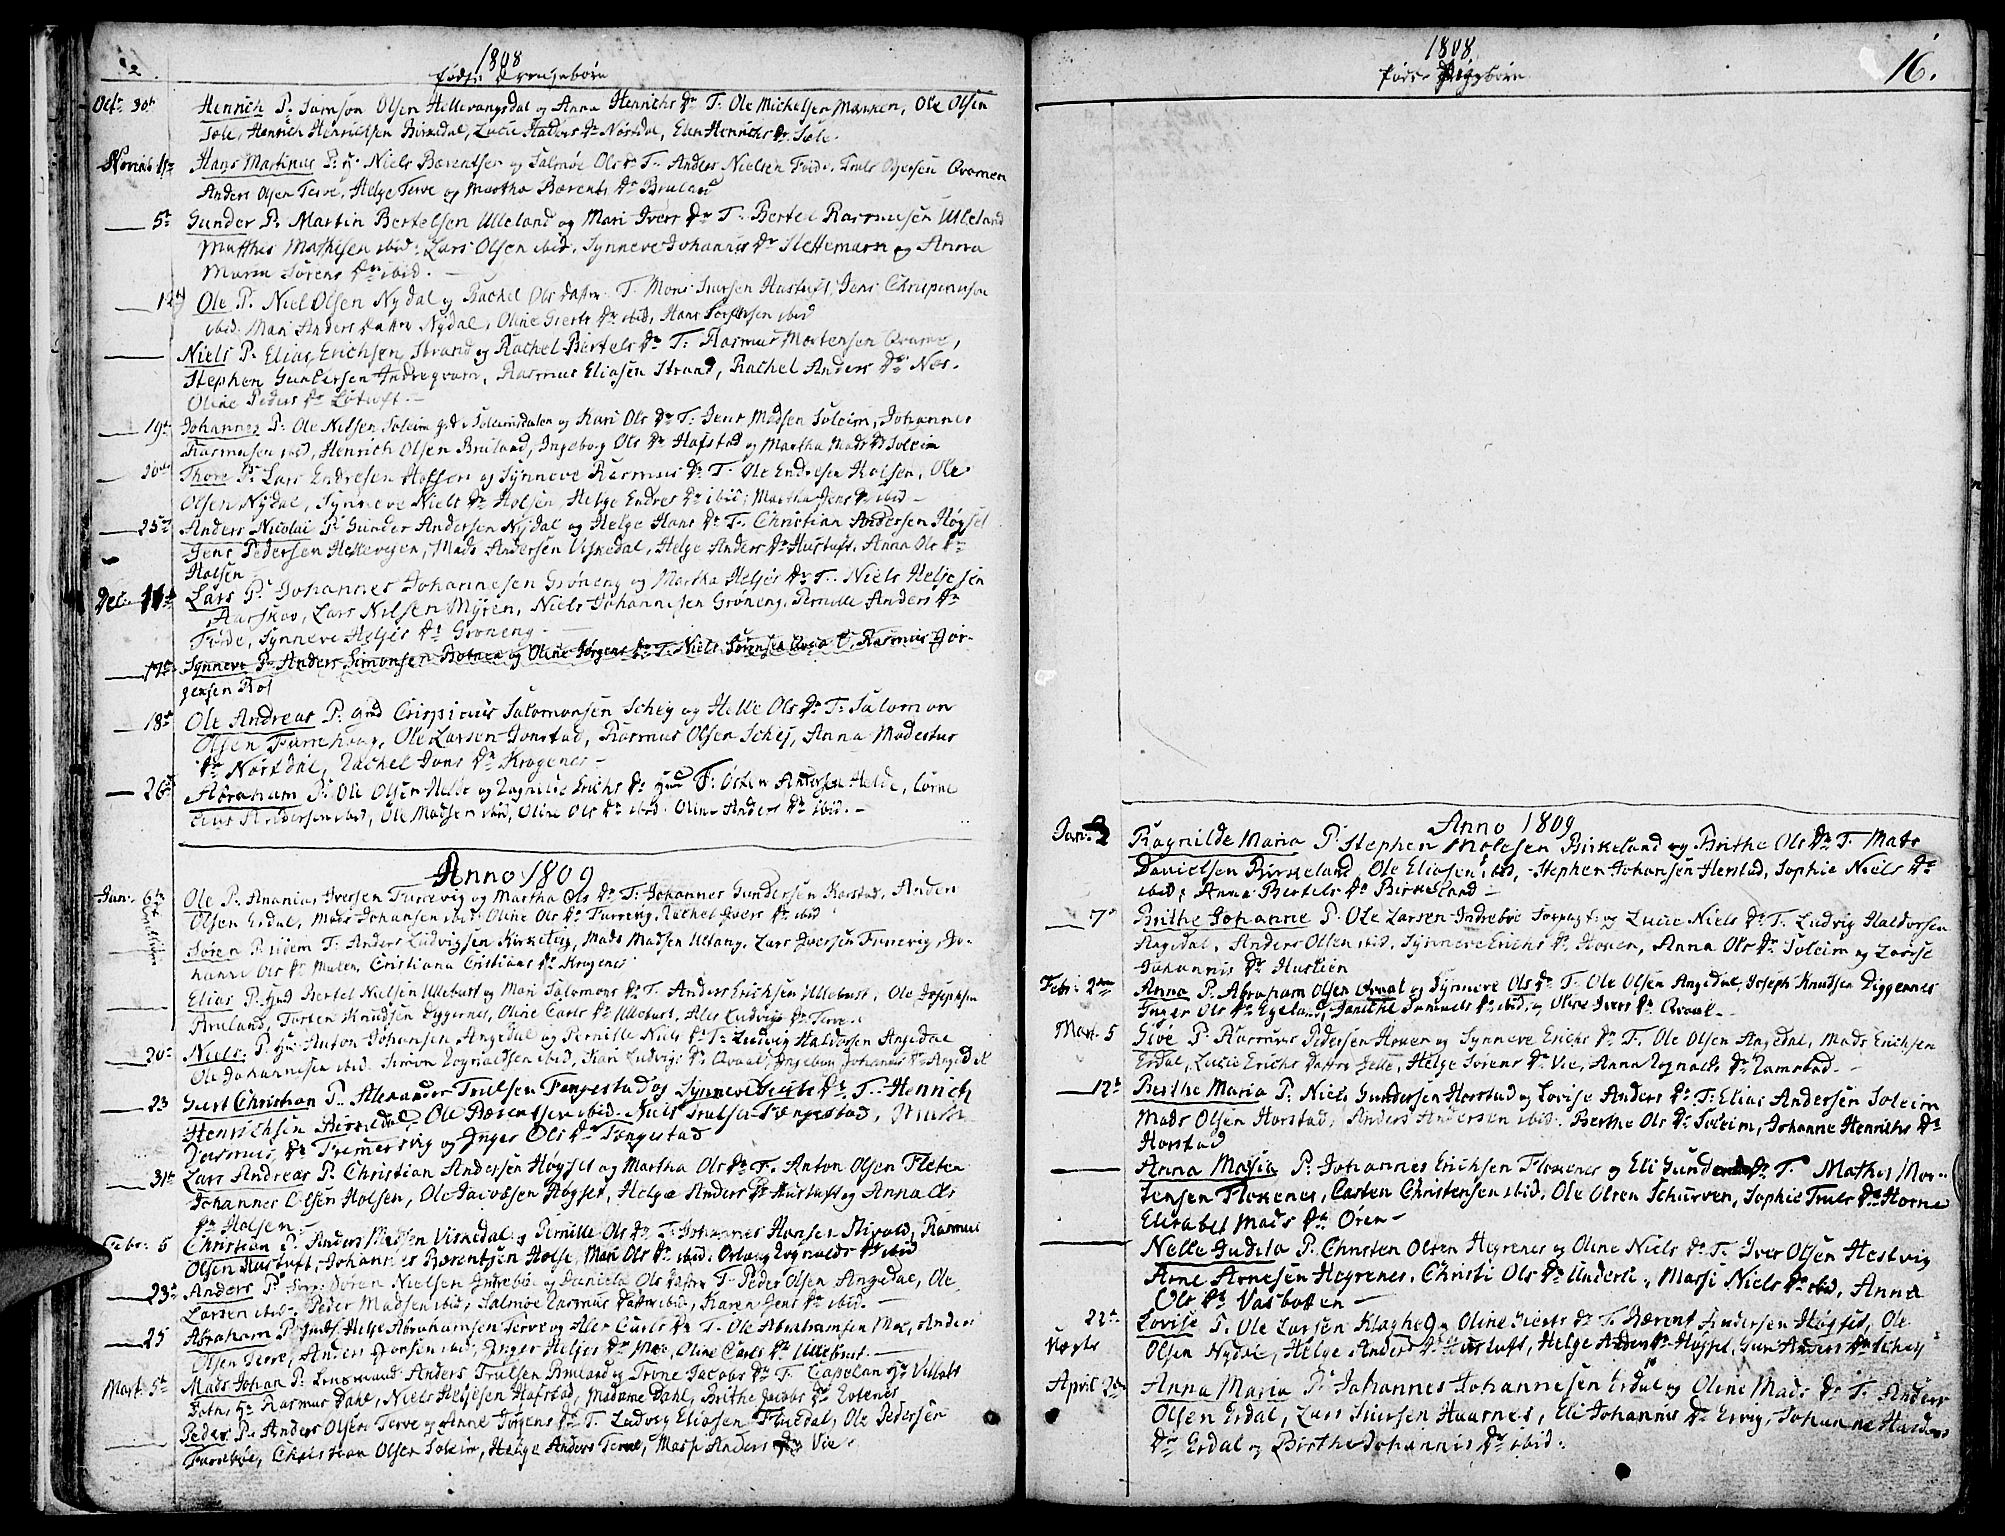 1808
fødte Drengebørn
Octr. 30te Henrich P. Samson Olsen Hellevangsdal og Anna Henrichs Dr T. Ole Michelsen Marken, Ole Olsen
Sole, Henrich Henrichsen Birkedal, Lucie Haldors Dr Norddal, Elen Henrichs Dr Sole.
Novemb. Hans Martinus P. Niels Bærentsen og Salmøe Ols Dr T. Anders Nielsen Førde, Truls Qvamen
Anders Olsen Terve, Helge Terve og Martha Bærents Dr Bruland
5te Gunder P. Martin Bertelsen Ulleland og Mari Ivers Dr T. Bertel Rasmusen Ulleland
Matthis Mathisen ibid: Lars Olsen ibid. Synneve Johannis Dr Slettemarn og Anna
Maria Sørens Dr ibid.
12 Ole P. Niel Olsen Nydal og Rachel Ols datter T. Mons Hustuft, Jens
ibid. Mari Anders datter Nydal, Oline Gierts Dr ibid, Hans ibid
Niels P. Elias Erichsen Strand og Rachel Bertels Dr T. Rasmus Mortensen Qvame,
Stephen Gundersen Indreqvam, Rasmus Eliasen Strand, Rachel Anders Dr Næs.
Oline Peders Dr Løtuft.
19te Johannes P. Ole Nilsen Soleim og Kari Ols Dr T. Jens Madsen Soleim, Johannes
Rasmusen ibid, Henrich Olsen Bruland, Ingebog Ols Dr Hafstad og Martha Mads Dr Soleim
Thore P. Lars Endresen Holsen og Synneve Rasmus Dr T. Ole Endresen Holsen, Ole
Olsen Nydal, Synneve Niels Dr Holsen, Helge Endres Dr ibid; Martha Jens Dr ibid
25de Anders Nicolai P. Gunder Andersen Nydal og Helge Hans Dr T. Christian Andersen Høgset
Jens Pedersen Hellevegen, Mads Andersen Viskedal, Helge Anders Dr Hustuft, Anna Ols Dr
Holsen
Dec. 11te Lars P. Johannes Johannesen Grøneng og Martha Heljes Dr T. Niels Heljesen
Aarskov, Lars Nilsen Myren, Niels Johannesen Grøneng, Pernille Anders Dr
Førde, Synneve Heljes Dr Grøneng.
17te Synneve P. Anders Simonsen Botnen og Oline Jørgens Dr T. Niels Sørensen Rasmus Jør-
gensen Bol
18te Ole Andreas P. Crispinus Salomonsen Schey og Helle Ols Dr T. Salomon
Olsen Farrehaug, Ole Larsen Jonstad, Rasmus Olsen Schej, Anna Modestus
Dr Norddal, Rachel Jons Dr Krogenes
26de Abraham P. Ole Olsen Helle og Ragnilde Erichs Dr T. Osten Andersen Helle, Corne
lius Andersen ibid, Ole Madsen ibid, Oline Ols Dr ibid. Oline Anders Dr ibid.
Anno 1809
Jan. 6te Ole P. Ananias Iversen Furrevig og Martha Ols Dr T. Johannes Gundersen Karstad, Anders
Olsen Erdal, Mads Johansen ibid. Oline Ols Dr Furreng, Rachel Ivers Dr ibid
Søren P. T. Anders Ludvigsen Kirketeig, Mads Madsen Ullang, Lars Iversen Furrevig, Jo-
hanne Ols Dr Mulen, Cristiana Cristians Dr Krogenes
Elias P. Bertel Nielsen Ullebust og Mari Salomons Dr T. Anders Erichsen Ullebust, Ole Josephsen
Bruland, Torsten Knudsen Diggernes, Oline Carls Dr Ullebust, Ales Ludvigs Dr Terve
20de Niels P. Anton Johansen Angedal og Pernille Niels Dr T. Ludvig Haldorsen Angedal
Ole Johannesen ibid. Simon Rognaldsen ibid, Kari Ludvigs Dr Qvaal, Ingebog Johannes Dr Angedal
23 Giert Christian P. Alexander Trulsen Fongestad og Synneve Gierts Dr T. Henrich
Henrichsen Birkedal, Ole Bærentsen ibid. Niels Trulsen Fongestad,
Rasmus Dr Fremersvig og Inger Ols Dr Fongestad
31te Lars Andreas P. Christian Andersen Høgset og Martha Ols Dr T. Anton Olsen Fleten
Johannes Olsen Holsen, Ole Jacobsen Høgset, Helge Anders Dr Hustuft og Anna Ols
Dr Holsen
Febr. 5 Christian P. Anders Madsen Viskedal og Pernille Ols Dr T. Johannes Hansen, Rasmus
Olsen Hustuft, Johannes Bærentsen Holse, Mari Ols Dr ibid. Rognalds Dr ibid
23de Anders P. Søren Nielsen Indrebøe og Daniele Ols datter T. Peder Olsen Angedal, Ole
Larsen ibid. Peder Madsen ibid, Salmøe Rasmus datter ibid, Karen Jens Dr ibid.
25 Abraham P. Helge Abrahamsen Terve og Ales Carls Dr T. Ole Abrahamsen Moe, Anders
Olsen Terve, Anders ibid, Inger Heljes Dr Moe, Oline Carls Dr Ullebust
Mart. 5te Mads Johan P. Anders Trulsen Bruland og Trone Jacobs Dr T. Capelan Hr
Hr Rasmus Dahl, Niels Helgesen Hafstad, Madame Dahl, Brithe Jacobs Dr
Peder P. Anders Olsen Terve og Anne Jørgens Dr T. Ludvig Eliasen Flugedal, Ole Pedersen
Farsbøe, Christian Olsen Soleim, Helge Anders Terve, Masse Anders Dr Vie
1808
fødte Pigebørn
16.
Anno 1809
Jan. 2 Ragnilde Maria P. Stephen Molesen Birkeland og Brithe Ols Dr T. Mads
Danielsen Birkeland, Ole Eliasen ibid, Stephen Johansen Herstad, Sophie Niels Dr
ibid; Anne Bertels Dr Birkeland
7de Brithe Johanne P. Ole Larsen Indrebøe og Lucie Niels Dr T. Ludvig Haldorsen
Angedal, Anders Olsen ibid, Synneve Erichs Dr Hoven, Anna Ols Dr Soleim og Lovise
Johannis Dr Huslien
Febr. 2den Anna P. Abraham Olsen Qvaal og Synneve Ols Dr T. Ole Olsen Angedal, Joseph Knudsen Diggernes
Inger Ols Dr Egeland, Janiche Samuels Dr ibid, og Oline Ivers Dr Qvaal
Mart. 5 Giøe P. Rasmus Pedersen Hoven og Synneve Erichs Dr T. Ole Olsen Angedal, Mads Erichsen
Erdal, Lucie Erichs datter Jelle, Helge Sørens Dr Vie, Anna Rognalds Dr Ramstad
12te Berthe Maria P. Niels Gundersen Horstad og Lovise Anders Dr T. Elias Andersen Soleim
Mads Olsen Horstad, Anders Andersen ibid. Berthe Ols Dr Soleim, Johanne Henrichs Dr
Horstad
Anna Maria P. Johannes Erichsen Floxenes og Eli Gunders Dr T. Mathis Mor-
tensen Floxenes, Carsten Christensen ibid, Ole Olsen Schurven, Sophie Truls Dr Horne
Elisabet Mads Dr Øren
Nelle Judita P. Christen Olsen Hegrenes og Oline Niels Dr T. Iver Olsen Hestvig
Arne Arnesen Hegrenes, Christi Ols Dr Underli, Massi Niels Dr ibid, Anna
Ols Dr Vasbotten
22de Lovise P. Ole Larsen Klaghe og Oline Gierts Dr T. Bærent Andersen Høgset, Ole
Olsen Nydal, Helge Anders Dr Hustuft, Helge Anders Dr Høgset, Guri Anders Dr Schey
April 2den Anna Maria P. Johannes Johannesen Erdal og Oline Mads Dr T. Anders
Olsen Erdal, Lars Siursen Haarnes, Eli Johannis Dr Ervig, Johanne Haldors
Dr Erdal og Birthe Johannis Dr ibid.